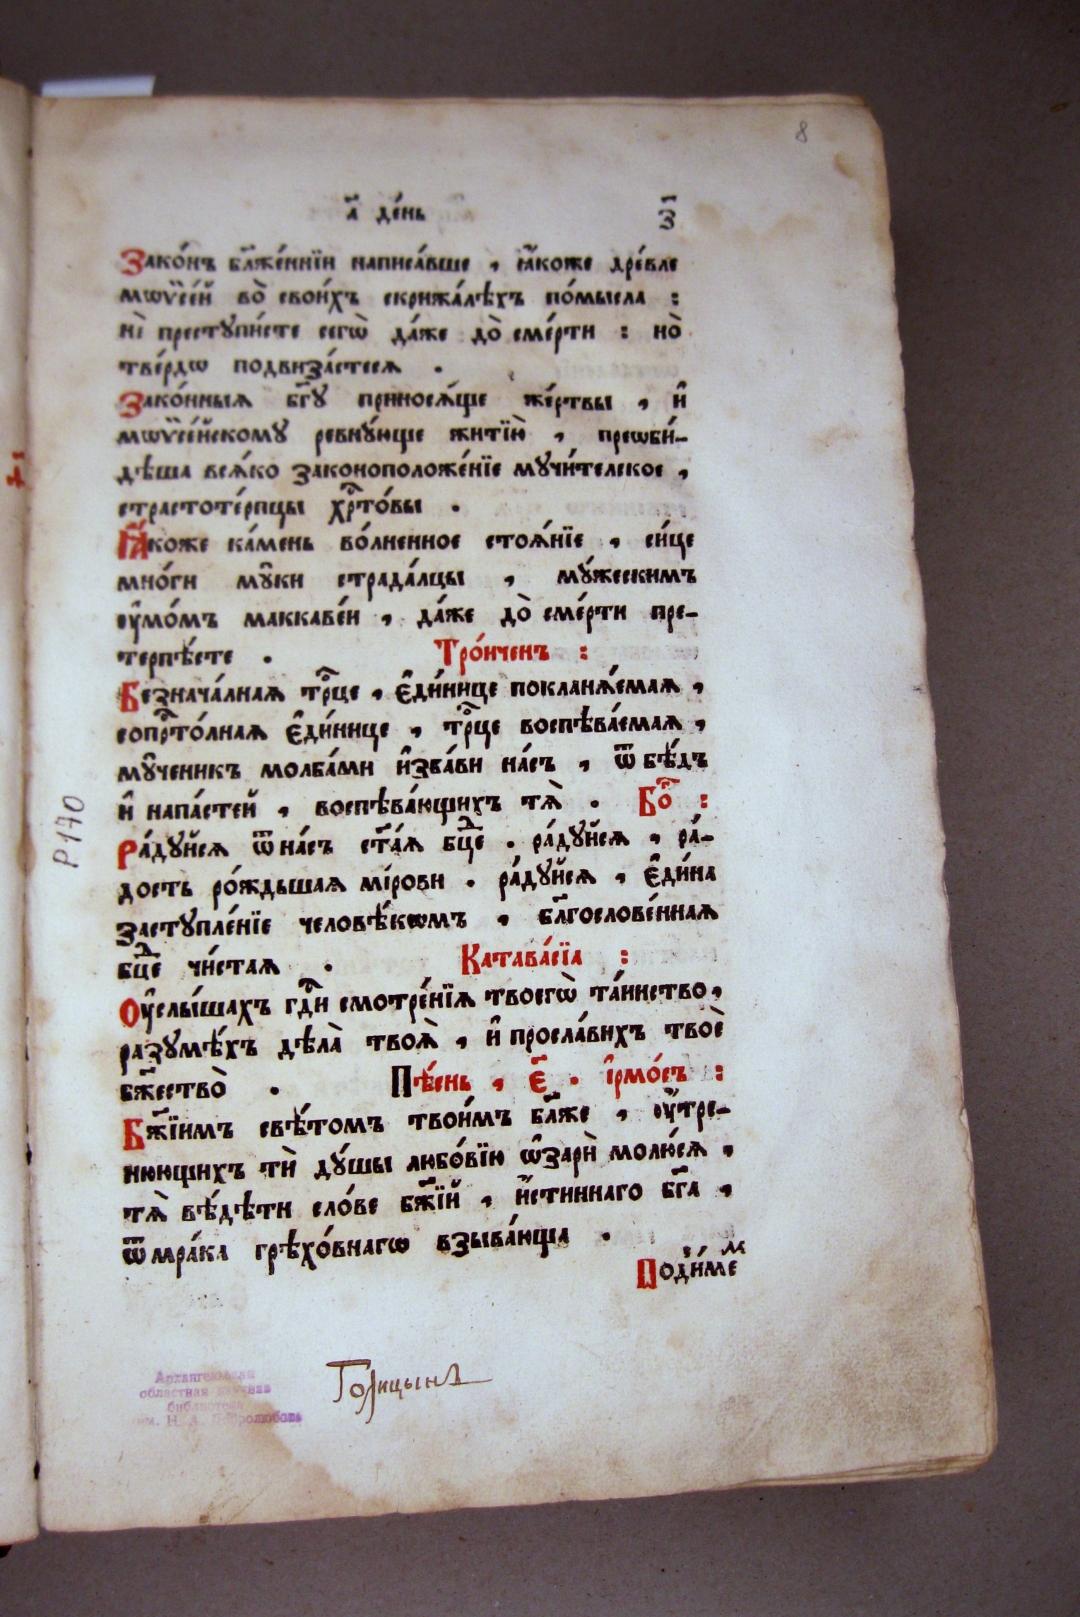 8
а҃ де́нь з҃
Зако́нъ бл҃же́ннїи написа́вше , ꙗ҆́коже дре́вле
мѡѷсе́й во̀ свои́хъ скрижа́лѣхъ по́мысла :
нѝ преступи́сте сегѡ̀ да́же до̀ сме́рти : но̀
тве́рдѡ подвиза́стеся .
Зако́нныѧ бг҃у приносѧ́ще же́ртвы , и҆
мѡѷсе́йскому ревну́юще житїю̀ , преѡби́-
дѣша всѧ́ко законоположе́нїе мучи́телское ,
страстоте́рпцы хрⷭ҇то́вы .
Ꙗ҆́коже ка́мень во́лненное стоѧ́нїе , си́це
мно́ги мꙋ҆ки страда́лцы , му́жескимъ
оу҆мо́мъ маккаве́и , да́же до̀ сме́рти пре-
терпѣ́сте . Тро́иченъ :
Безнача́лнаѧ трⷪ҇це , є҆ди́нице покланѧ́емаѧ ,
сопрⷭ҇то́лнаѧ є҆ди́нице , трⷪ҇це воспѣва́емаѧ ,
мꙋ҆ченикъ молба́ми и҆зба́ви на́съ , ѿ бѣ́дъ
и҆ напа́стей , воспѣва́ющихъ тѧ̀ . Бо҃ :
Ра́дуйсѧ ѿ на́съ ст҃а́ѧ бцⷣе . ра́дуйсѧ , ра́-
дость ро́ждьшаѧ мі́рови . ра́дуйсѧ , є҆ди́на
заступле́нїе человѣ́кѡмъ , бл҃гослове́ннаѧ
бцⷣе чи́стаѧ . Катава́сїа :
Оу҆слы́шахъ гдⷭ҇и смотре́нїѧ твоегѡ̀ та́инство ,
разумѣ́хъ дѣла̀ твоѧ̀ , и҆ просла́вихъ твоѐ
бж҃ество̀ . Пѣ́снь , є҃ . і҆рмо́съ :
Бж҃їимъ свѣ́томъ твои́мъ бл҃же , оу҆тре-
нюющихъ тѝ ду́шы любо́вїю ѡ҆зарѝ молю́сѧ ,
тѧ̀ вѣ́дѣти сло́ве бж҃їй , и҆́стиннаго бг҃а ,
ѿ мра́ка грѣхо́внагѡ взыва́юща .
Поди́меⷨ
Р 170
Голицынъ
Архангельская
областная научная
библиотека
им. Н. А. Добролюбова